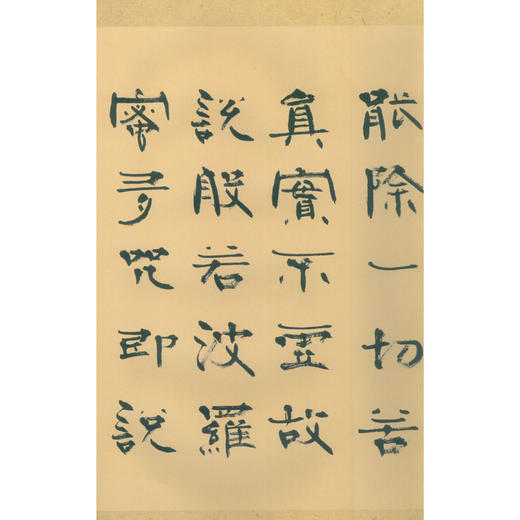 能除一切苦
真實不虛故
說般若波羅
蜜多咒即說